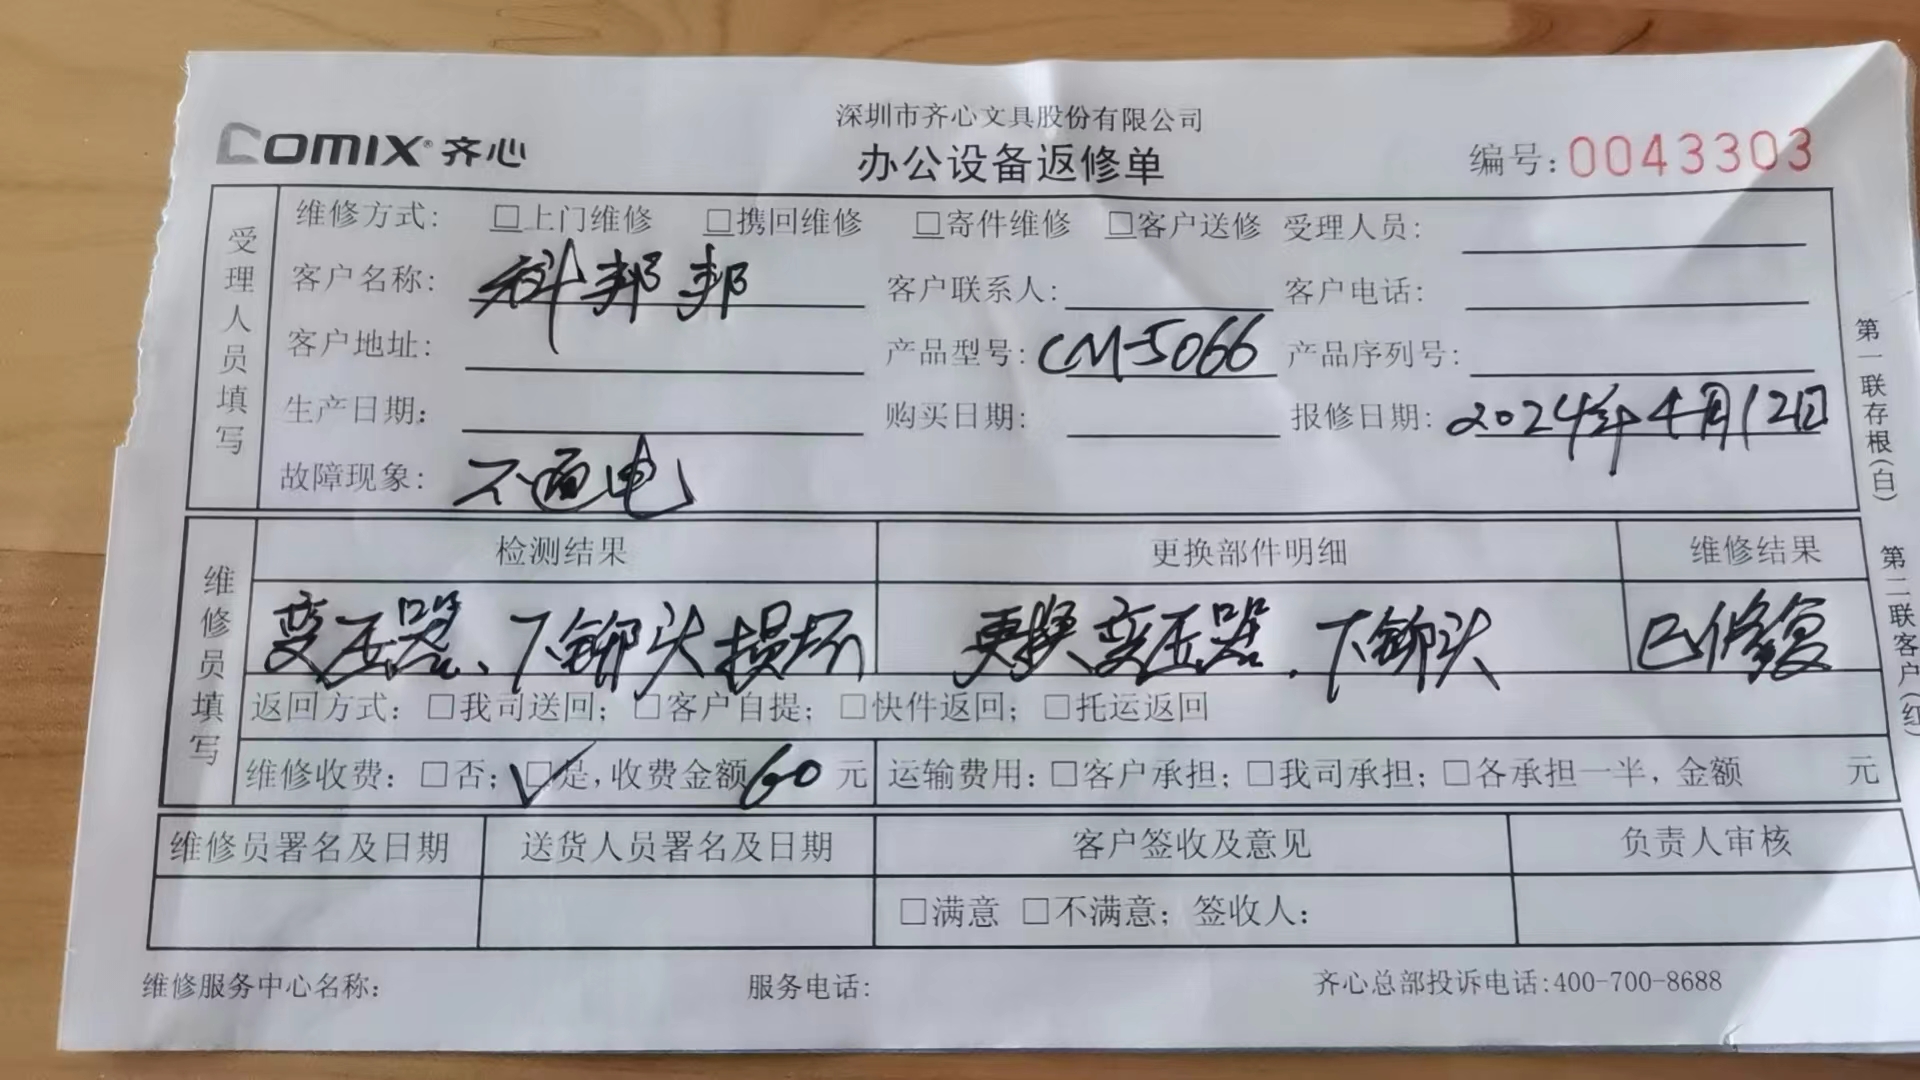 深圳市齐心文具股份有限公司
COMIX 齐心
办公设备返修单
编号:0043303
受理人员填写
维修方式: □上门维修 □携回维修 □寄件维修 □客户送修 受理人员:
客户名称: 科邦邦 客户联系人: 客户电话:
客户地址: 产品型号: CM-5066 产品序列号:
生产日期: 购买日期: 报修日期: 2024年4月12日
故障现象: 不通电
维修员填写
检测结果 更换部件明细 维修结果
变压器、下铆头损坏 更换变压器、下铆头 已修复
返回方式: □我司送回; □客户自提; □快件返回; □托运返回
维修收费: □否; ☑是, 收费金额60元 运输费用: □客户承担; □我司承担; □各承担一半, 金额 元
维修员署名及日期 送货人员署名及日期 客户签收及意见 负责人审核
□满意 □不满意; 签收人:
维修服务中心名称: 服务电话: 齐心总部投诉电话:400-700-8688
第一联存根(白)
第二联客户(红)